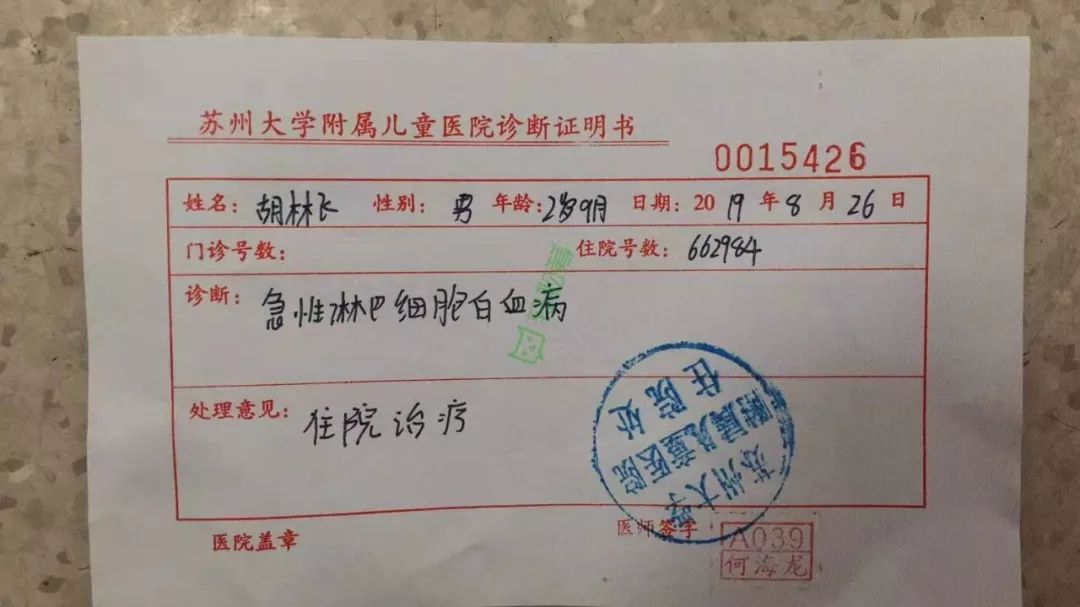 苏州大学附属儿童医院诊断证明书
0015426
姓名：胡林飞 性别：男 年龄：2岁9月 日期：2019年8月26日
门诊号数： 住院号数：662984
诊断：急性淋巴细胞白血病
处理意见：住院治疗
苏州大学
附属儿童医院
住院处
医院盖章 医师签字
A039
何海龙